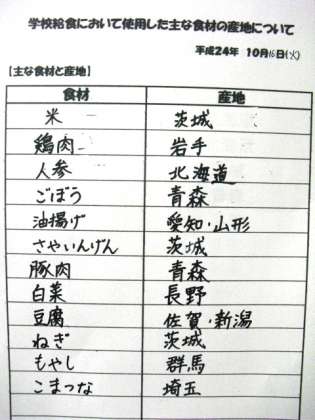 学校給食において使用した主な食材の産地について
平成24年 10月16日(火)
【主な食材と産地】
食材 産地
米 茨城
鶏肉 岩手
人参 北海道
ごぼう 青森
油揚げ 愛知・山形
さやいんげん 茨城
豚肉 青森
白菜 長野
豆腐 佐賀・新潟
ねぎ 茨城
もやし 群馬
こまつな 埼玉